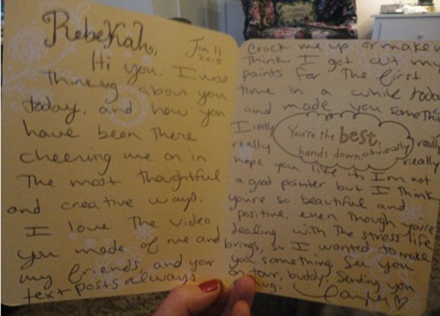 Rebekah,
Jan 11
Hi you. I was
thinking about you
today, and how you
have been there
cheering me on in
the most thoughtful
and creative ways.
I love the video
you made of me and
my friends, and your
text posts always
crack me up or make
think I got out my
paints for the first
time in a while today
and made you something
I really
really
really
really
You're the best,
hands down, obviously
hope you like it. I'm not
a good painter but I think
you're so beautiful and
positive, even though you're
dealing with the stress life
brings, so I wanted to make
you something. See you
on tour, buddy. Sending you
hug.